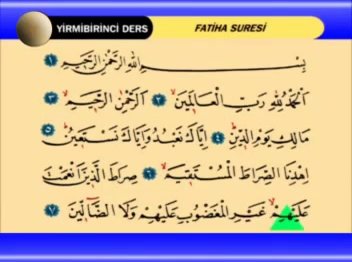 YİRMİBİRİNCİ DERS
FATİHA SURESİ
بِسْمِ اللّٰهِ الرَّحْمٰنِ الرَّحِيمِ ﴿١﴾
اَلْحَمْدُ لِلّٰهِ رَبِّ الْعَالَمِينَ ﴿٢﴾ اَلرَّحْمٰنِ الرَّحِيمِ ﴿٣﴾
مَالِكِ يَوْمِ الدِّينِ ﴿٤﴾ اِيَّاكَ نَعْبُدُ وَاِيَّاكَ نَسْتَعِينُ ﴿٥﴾
اِهْدِنَا الصِّرَاطَ الْمُسْتَقِيمَ ﴿٦﴾ صِرَاطَ الَّذِينَ اَنْعَمْتَ
عَلَيْهِمْ غَيْرِ الْمَغْضُوبِ عَلَيْهِمْ وَلَا الضَّالِّينَ ﴿٧﴾